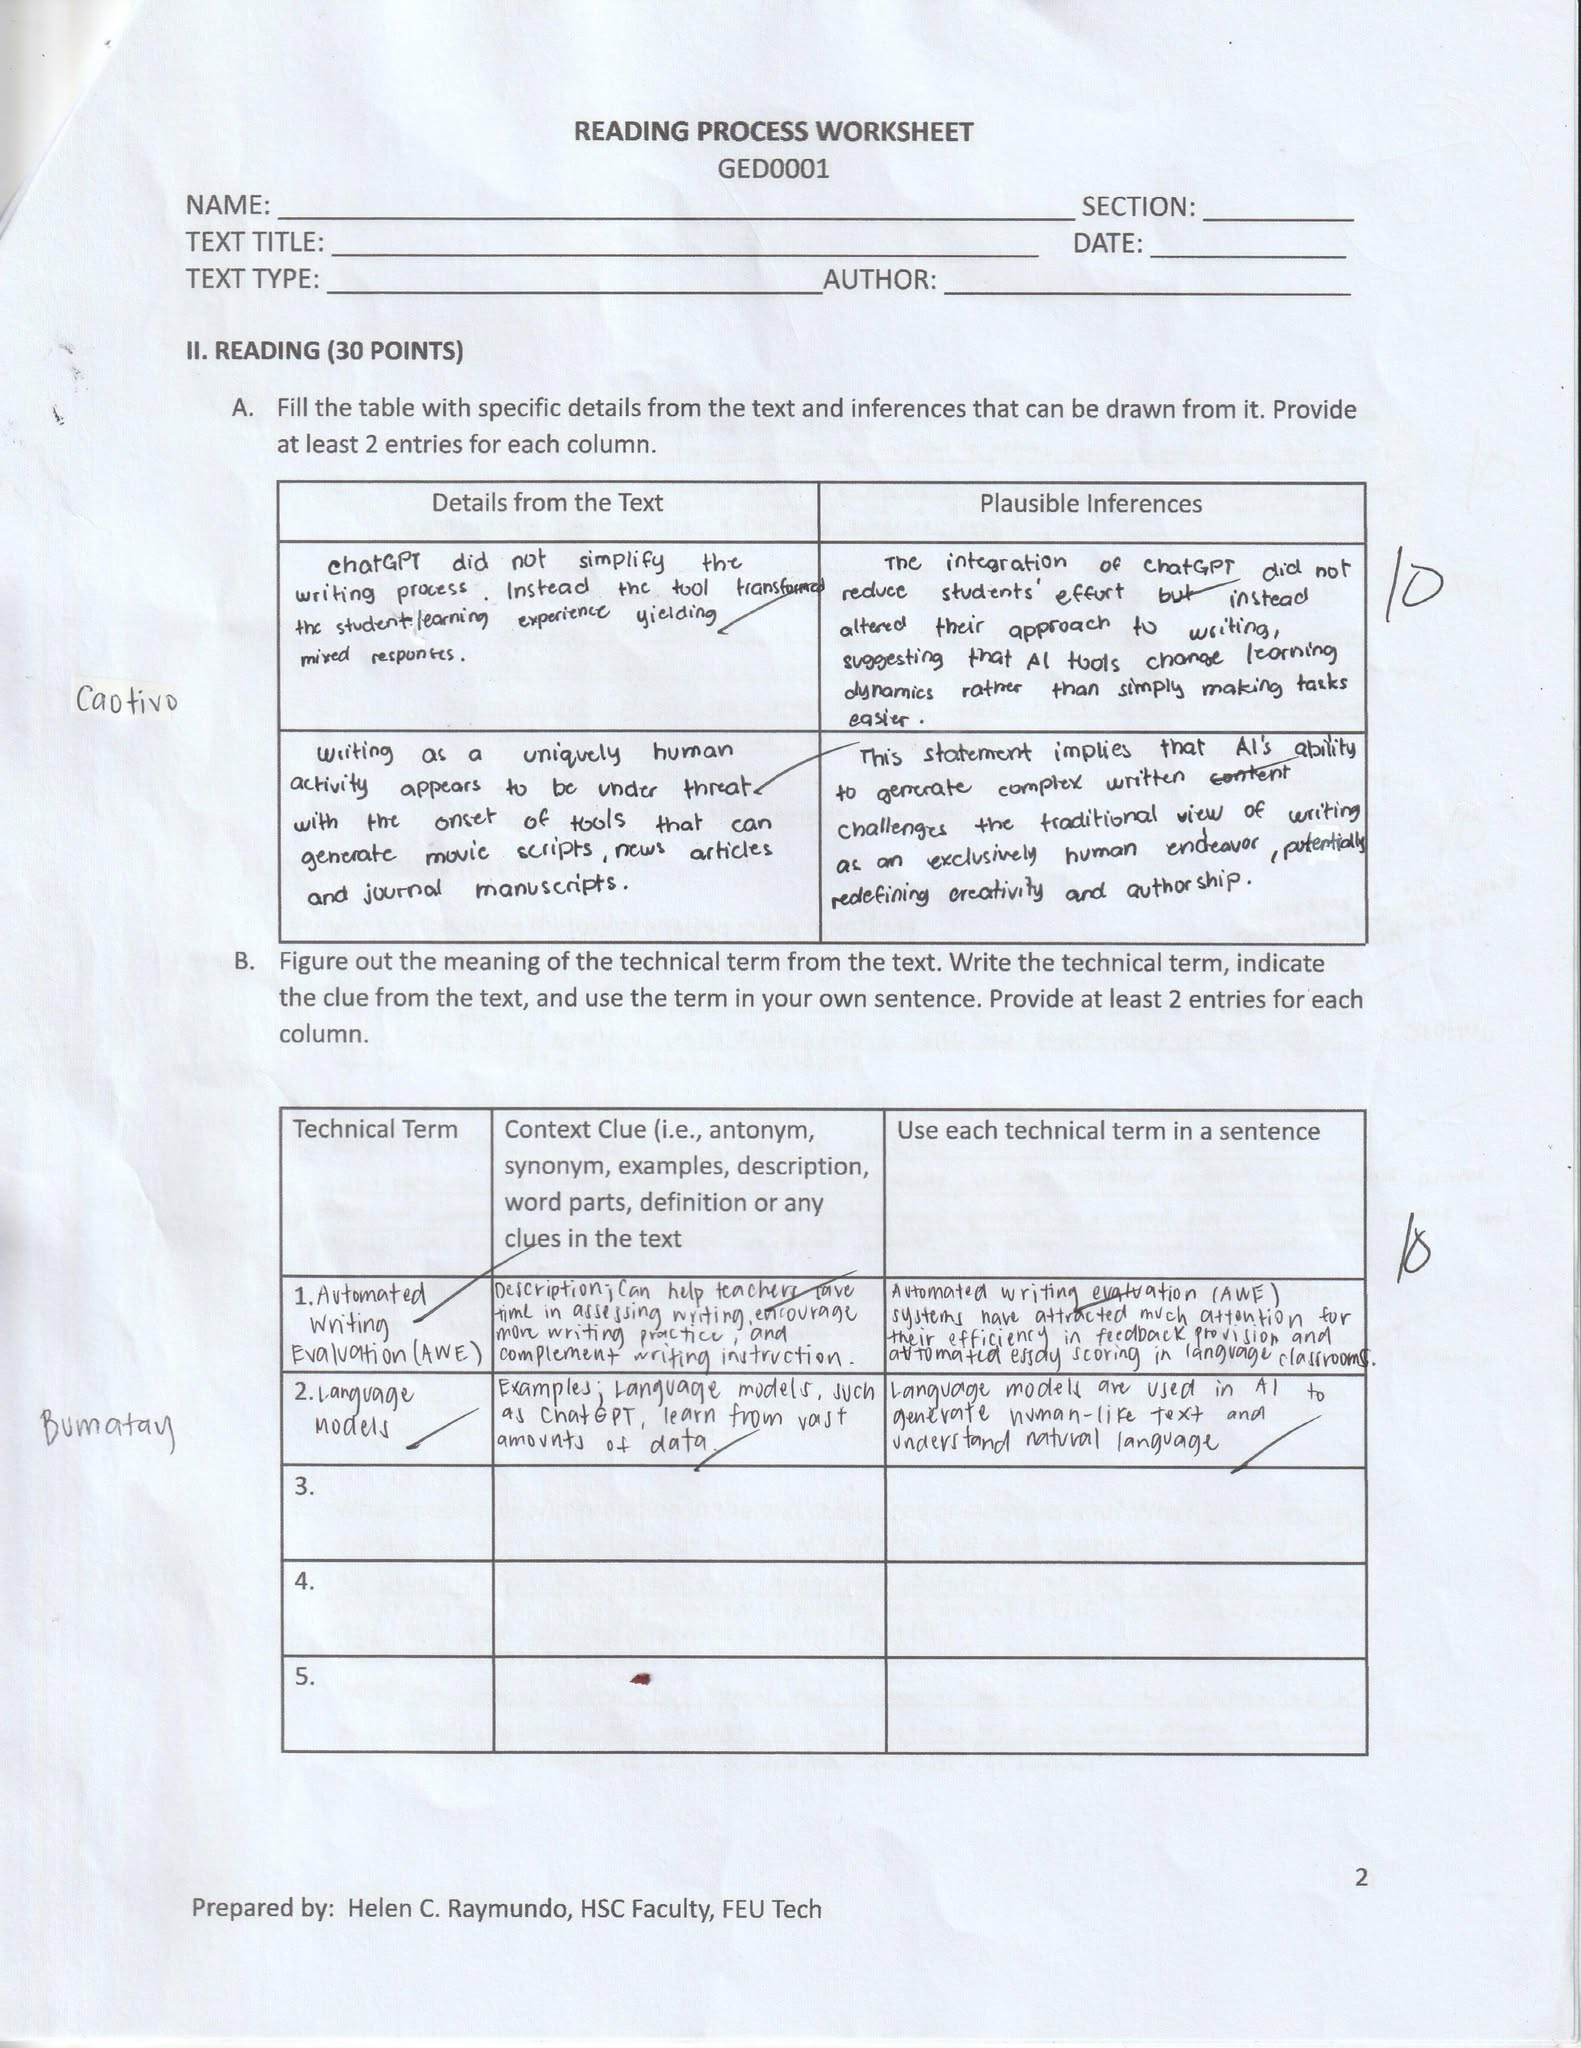 READING PROCESS WORKSHEET
GED0001
NAME: SECTION:
TEXT TITLE: DATE:
TEXT TYPE: AUTHOR:
II. READING (30 POINTS)
A. Fill the table with specific details from the text and inferences that can be drawn from it. Provide
at least 2 entries for each column.
Details from the Text
Plausible Inferences
chatGPT did not simplify the
writing process. Instead the tool transformed
the student learning experience yielding
mixed responses.
The integration of ChatGPT did not
reduce students' effort but instead
altered their approach to writing,
suggesting that AI tools change learning
dynamics rather than simply making tasks
easier.
10
Caotivo
Writing as a uniquely human
activity appears to be under threat
with the onset of tools that can
generate movie scripts, news articles
and journal manuscripts.
This statement implies that AI's ability
to generate complex written content
challenges the traditional view of writing
as an exclusively human endeavor, potentially
redefining creativity and authorship.
B. Figure out the meaning of the technical term from the text. Write the technical term, indicate
the clue from the text, and use the term in your own sentence. Provide at least 2 entries for each
column.
Technical Term
Context Clue (i.e., antonym,
synonym, examples, description,
word parts, definition or any
clues in the text
Use each technical term in a sentence
1. Automated
Writing
Evaluation (AWE)
Description; Can help teachers save
time in assessing writing, encourage
more writing practice, and
complement writing instruction.
Automated writing evaluation (AWE)
systems have attracted much attention for
their efficiency in feedback provision and
automated essay scoring in language classrooms.
10
2. Language
models
Examples; Language models, such
as ChatGPT, learn from vast
amounts of data.
Language models are used in AI to
generate human-like text and
understand natural language
Bumatay
3.
4.
5.
2
Prepared by: Helen C. Raymundo, HSC Faculty, FEU Tech